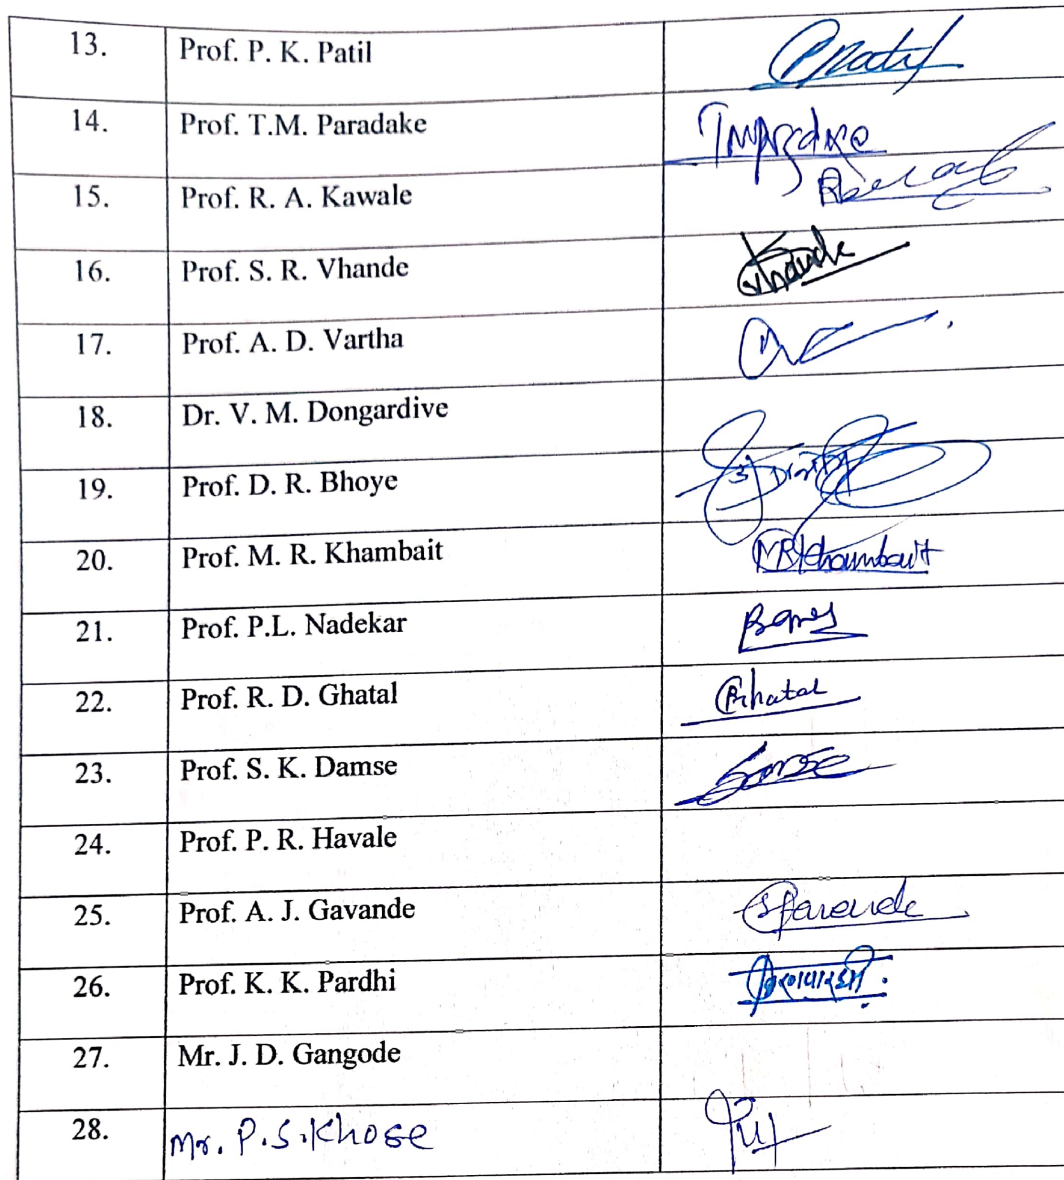 13. Prof. P. K. Patil
14. Prof. T.M. Paradake
15. Prof. R. A. Kawale
16. Prof. S. R. Vhande
17. Prof. A. D. Vartha
18. Dr. V. M. Dongardive
19. Prof. D. R. Bhoye
20. Prof. M. R. Khambait MRKhambait
21. Prof. P.L. Nadekar
22. Prof. R. D. Ghatal
23. Prof. S. K. Damse
24. Prof. P. R. Havale
25. Prof. A. J. Gavande
26. Prof. K. K. Pardhi
27. Mr. J. D. Gangode
28. Mr. P.S.Khose